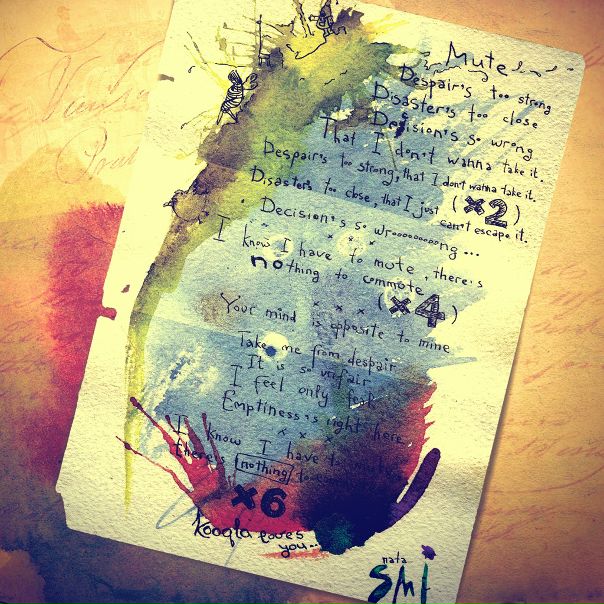 Mute
Despair's too strong
Disaster's too close
Decision's so wrong
That I don't wanna take it.
Despair's too strong, that I don't wanna take it.
Disaster's too close, that I just can't escape it.
(×2)
Decision's so wrooooooooong...
x x x
I know I have to mute, there's
nothing to commute
(×4)
x x x
Your mind is opposite to mine
Take me from despair
It is so unfair
I feel only
Emptiness is right here
x x x
I know I have to
there's nothing to
×6
Koogla loves
you...
nata
smi